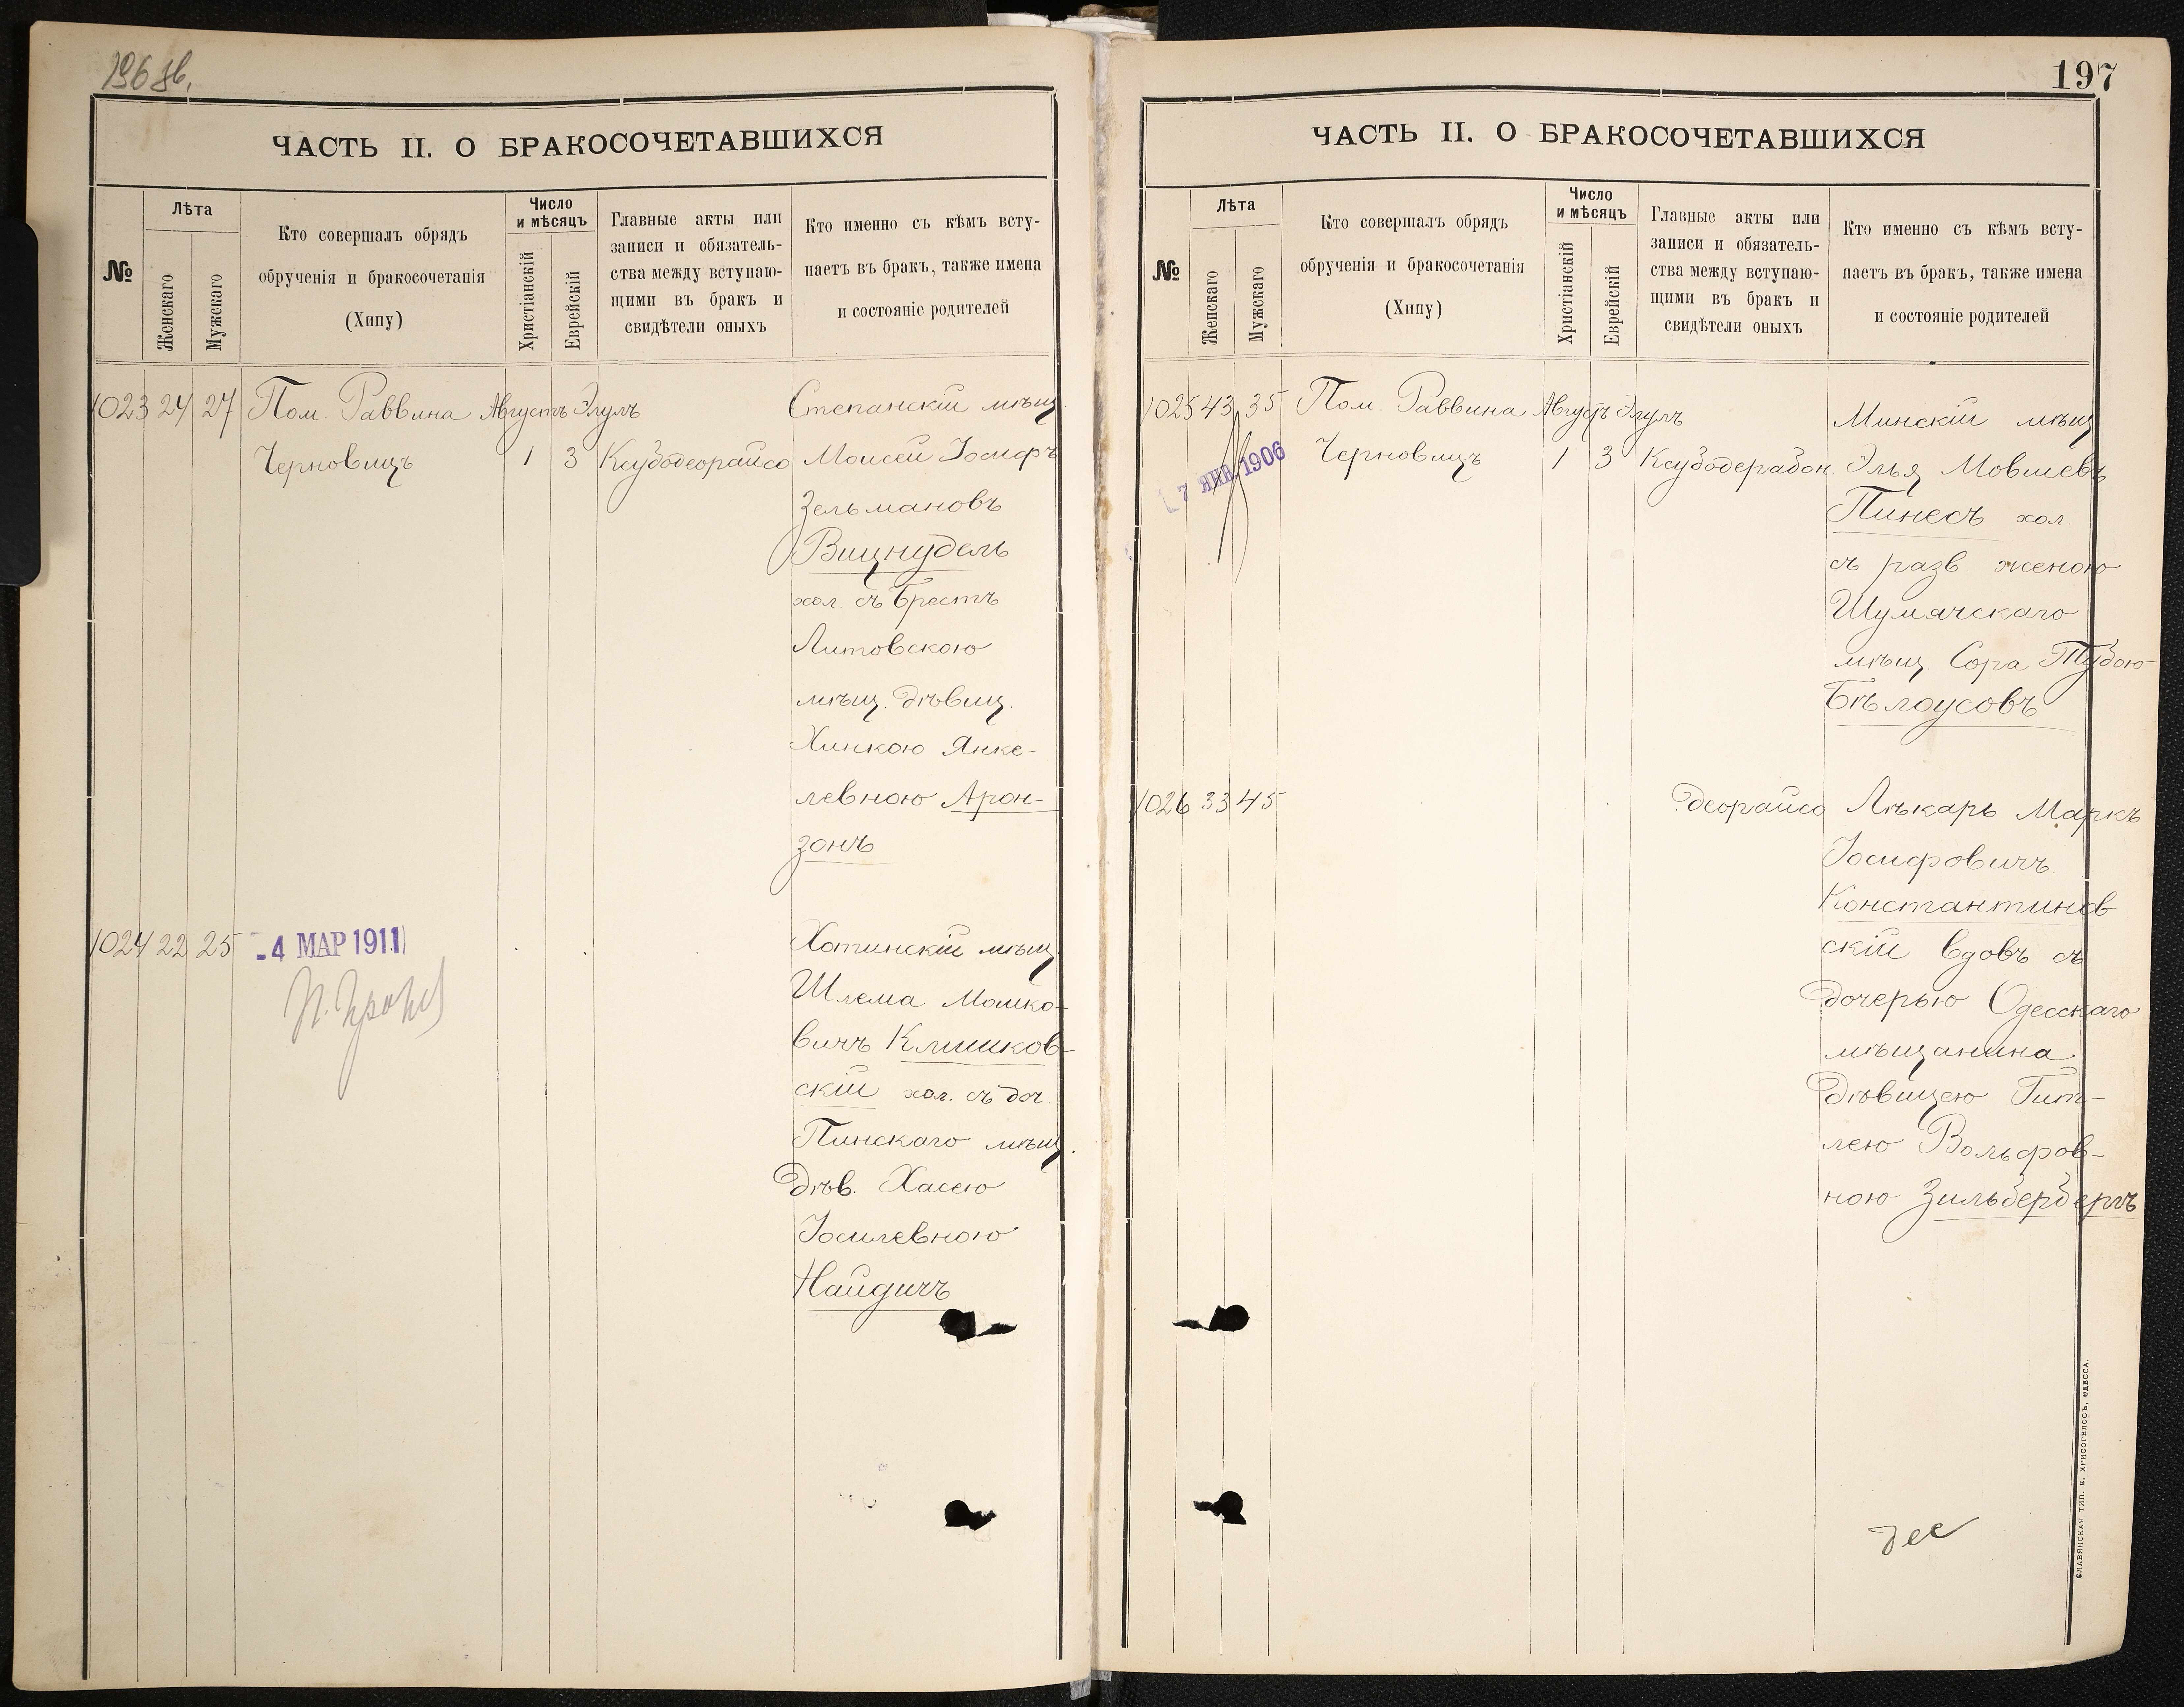 196 об.
ЧАСТЬ II. О БРАКОСОЧЕТАВШИХСЯ
№
Лѣта
Женскаго
Мужскаго
Кто совершалъ обрядъ
обрученія и бракосочетанія
(Хипу)
Число
и мѣсяцъ
Христіанскій
Еврейскій
Главные акты или
записи и обязатель-
ства между вступаю-
щими въ бракъ и
свидѣтели оныхъ
Кто именно съ кѣмъ всту-
паетъ въ бракъ, также имена
и состояніе родителей
1023 24 27 Пом. Раввина Августъ Элулъ Степанскій мѣщ.
Черновицъ 1 3 Ксубодеорайсо Моисей Іосифъ
Зельмановъ
Вицнудель
хол. съ Брестъ
Литовскою
мѣщ. дѣвиц.
Хинкою Янке-
левною Арон-
зонъ
1024 22 25 -4 МАР 1911 Хотинскій мѣщ.
Шлема Мошко-
вичъ Клишков-
скій хол. съ доч.
Пинскаго мѣщ.
дѣв. Хасею
Іоселевною
Найдичъ
197
ЧАСТЬ II. О БРАКОСОЧЕТАВШИХСЯ
№
Лѣта
Женскаго
Мужскаго
Кто совершалъ обрядъ
обрученія и бракосочетанія
(Хипу)
Число
и мѣсяцъ
Христіанскій
Еврейскій
Главные акты или
записи и обязатель-
ства между вступаю-
щими въ бракъ и
свидѣтели оныхъ
Кто именно съ кѣмъ всту-
паетъ въ бракъ, также имена
и состояніе родителей
1025 43 35 Пом. Раввина Августъ Элулъ Минскій мѣщ
7 ЯНВ. 1906 Черновицъ 1 3 Ксубодерабон Элья Мовшевъ
Пинесъ хол.
съ разв. женою
Шумячскаго
мѣщ. Сора Тубою
Бѣлоусовъ
1026 33 45 деорайсо Лѣкарь Маркъ
Іосифовичъ
Константинов
скій вдовъ съ
дочерью Одесскаго
мѣщанина
дѣвицею Гит-
лею Вольфов-
ною Зильбербергъ
СЛАВЯНСКАЯ ТИП. Е. ХРИСОГЕЛОСЪ, ОДЕССА.